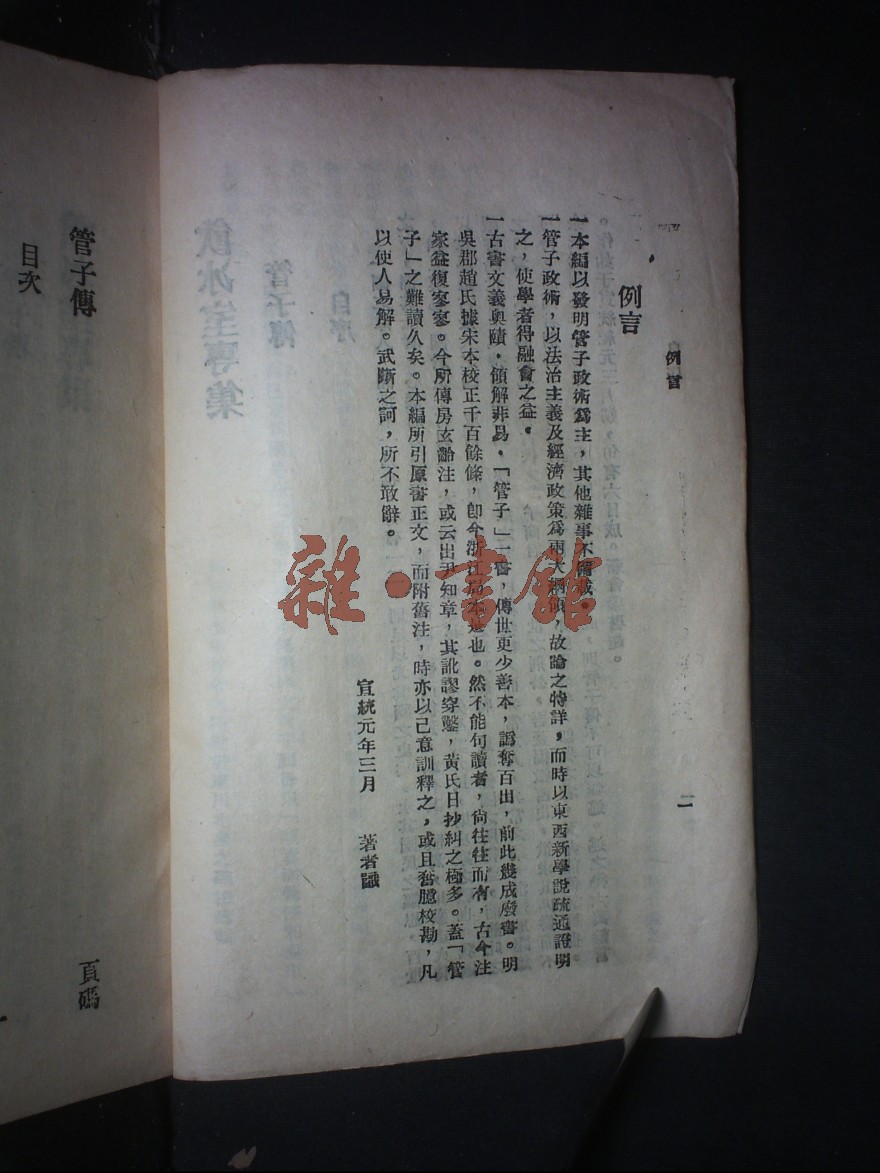 例言
二
例言
一本編以發明管子政術爲主，其他雜事不備載。
一管子政術，以法治主義及經濟政策爲兩大綱領，故論之特詳，而時以東西新學說疏通證明
之，使學者得融會之益。
一古書文義奧賾，領解非易，「管子」一書，傳世更少善本，譌奪百出，前此幾成廢書。明
吳郡趙氏據宋本校正千百餘條，卽今浙江局本是也。然不能句讀者，尙往往而有，古今注
家益復寥寥。今所傳房玄齡注，或云出尹知章，其訛謬穿鑿，黃氏日抄糾之極多。蓋「管
子」之難讀久矣。本編所引原書正文，而附舊注，時亦以己意訓釋之，或且奮臆校勘，凡
以使人易解。武斷之訶，所不敢辭。
宣統元年三月　著者識
管子傳
目次
頁碼
雜·書館